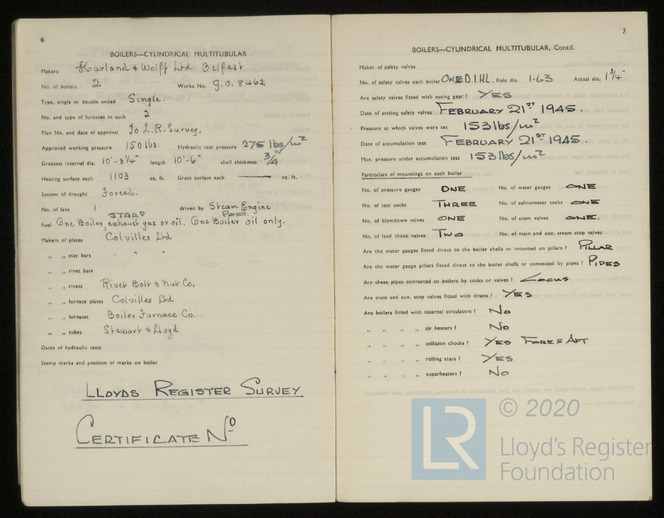 6
BOILERS—CYLINDRICAL MULTITUBULAR
Makers Harland & Wolff Ltd Belfast
No. of boilers 2 Works No. G.O. 8462
Type, single or double ended Single.
No. and type of furnaces in each 2
Plan No. and date of approval To L.R. Survey.
Approved working pressure 150 lbs. Hydraulic test pressure 275 lbs/in²
Greatest internal dia. 10'-8¼" length 10'-6" shell thickness 3/4"
Heating surface each 1103 sq. ft. Grate surface each — sq. ft.
System of draught Forced.
No. of fans 1 driven by Steam Engine
STARD PORT.
Fuel One Boiler, exhaust gas or oil. One Boiler oil only.
Makers of plates Colvilles Ltd
„ „ stay bars " "
„ „ rivet bars
„ „ rivets Rivet Bolt & Nut Co.
„ „ furnace plates Colvilles Ltd
„ „ furnaces Boiler Furnace Co.
„ „ tubes Stewart & Lloyd
Dates of hydraulic tests
Stamp marks and position of marks on boiler
LLOYDS REGISTER SURVEY
CERTIFICATE Nº
7
BOILERS—CYLINDRICAL MULTITUBULAR, Contd.
Maker of safety valves
No. of safety valves each boiler ONE D.I.HL. Rule dia. 1·63 Actual dia. 1¾"
Are safety valves fitted with easing gear? YES
Date of setting safety valves FEBRUARY 21ST 1945.
Pressure at which valves were set 153 lbs/in²
Date of accumulation test FEBRUARY 21ST 1945.
Max. pressure under accumulation test 153 lbs/in²
Particulars of mountings on each boiler
No. of pressure gauges ONE No. of water gauges ONE
No. of test cocks THREE No. of salinometer cocks ONE
No. of blowdown valves ONE No. of scum valves ONE.
No. of feed check valves TWO No. of main and aux. steam stop valves
Are the water gauges fitted direct to the boiler shells or mounted on pillars? PILLAR
Are the water gauge pillars fitted direct to the boiler shells or connected by pipes? PIPES
Are these pipes connected to boilers by cocks or valves? COCKS
Are main and aux. stop valves fitted with drains? YES
Are boilers fitted with internal circulators? NO
„ „ „ „ air heaters? NO
„ „ „ „ collision chocks? YES FORE & AFT
„ „ „ „ rolling stays? YES
„ „ „ „ superheaters? NO
LR © 2020
Lloyd's Register
Foundation